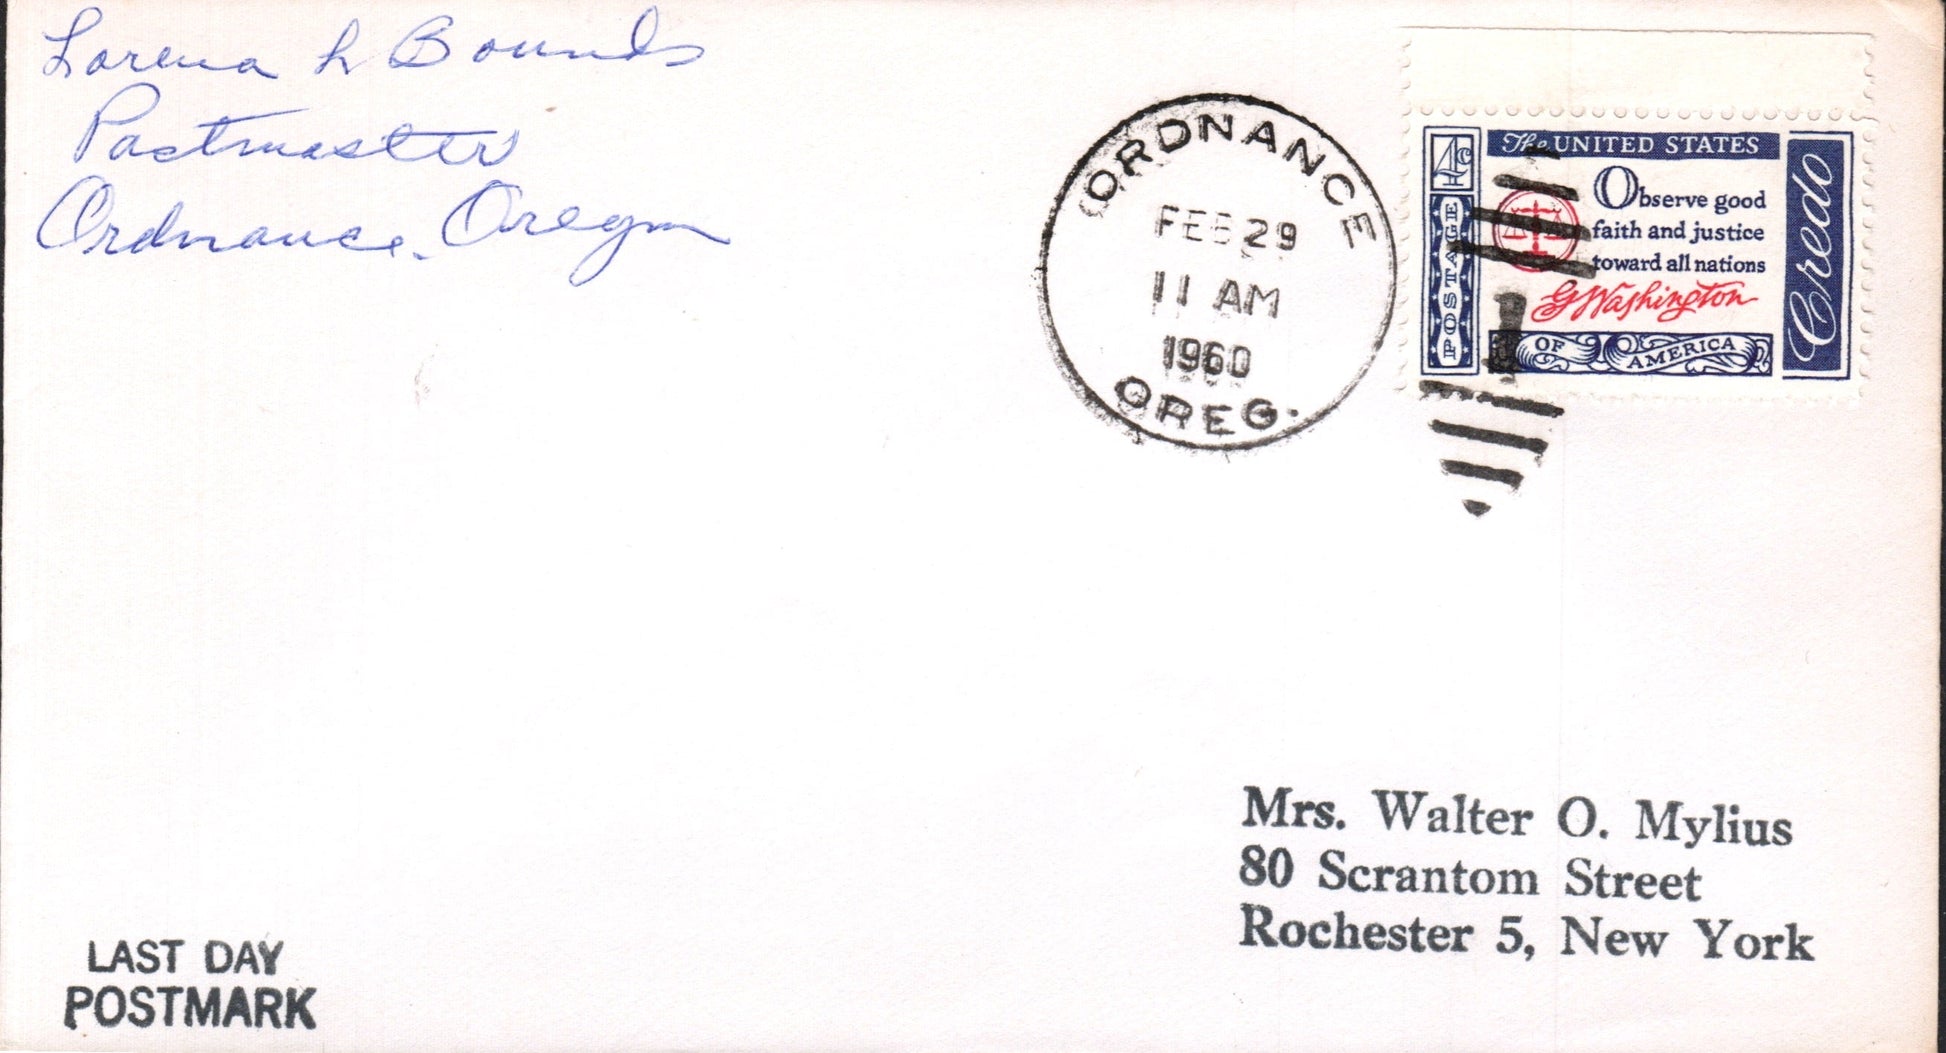 Lorena L Bounds
Postmaster
Ordnance, Oregon
ORDNANCE
FEB 29
11 AM
1960
OREG.
The UNITED STATES
4c
POSTAGE
Observe good
faith and justice
toward all nations
G Washington
OF AMERICA
Credo
Mrs. Walter O. Mylius
80 Scrantom Street
Rochester 5, New York
LAST DAY
POSTMARK